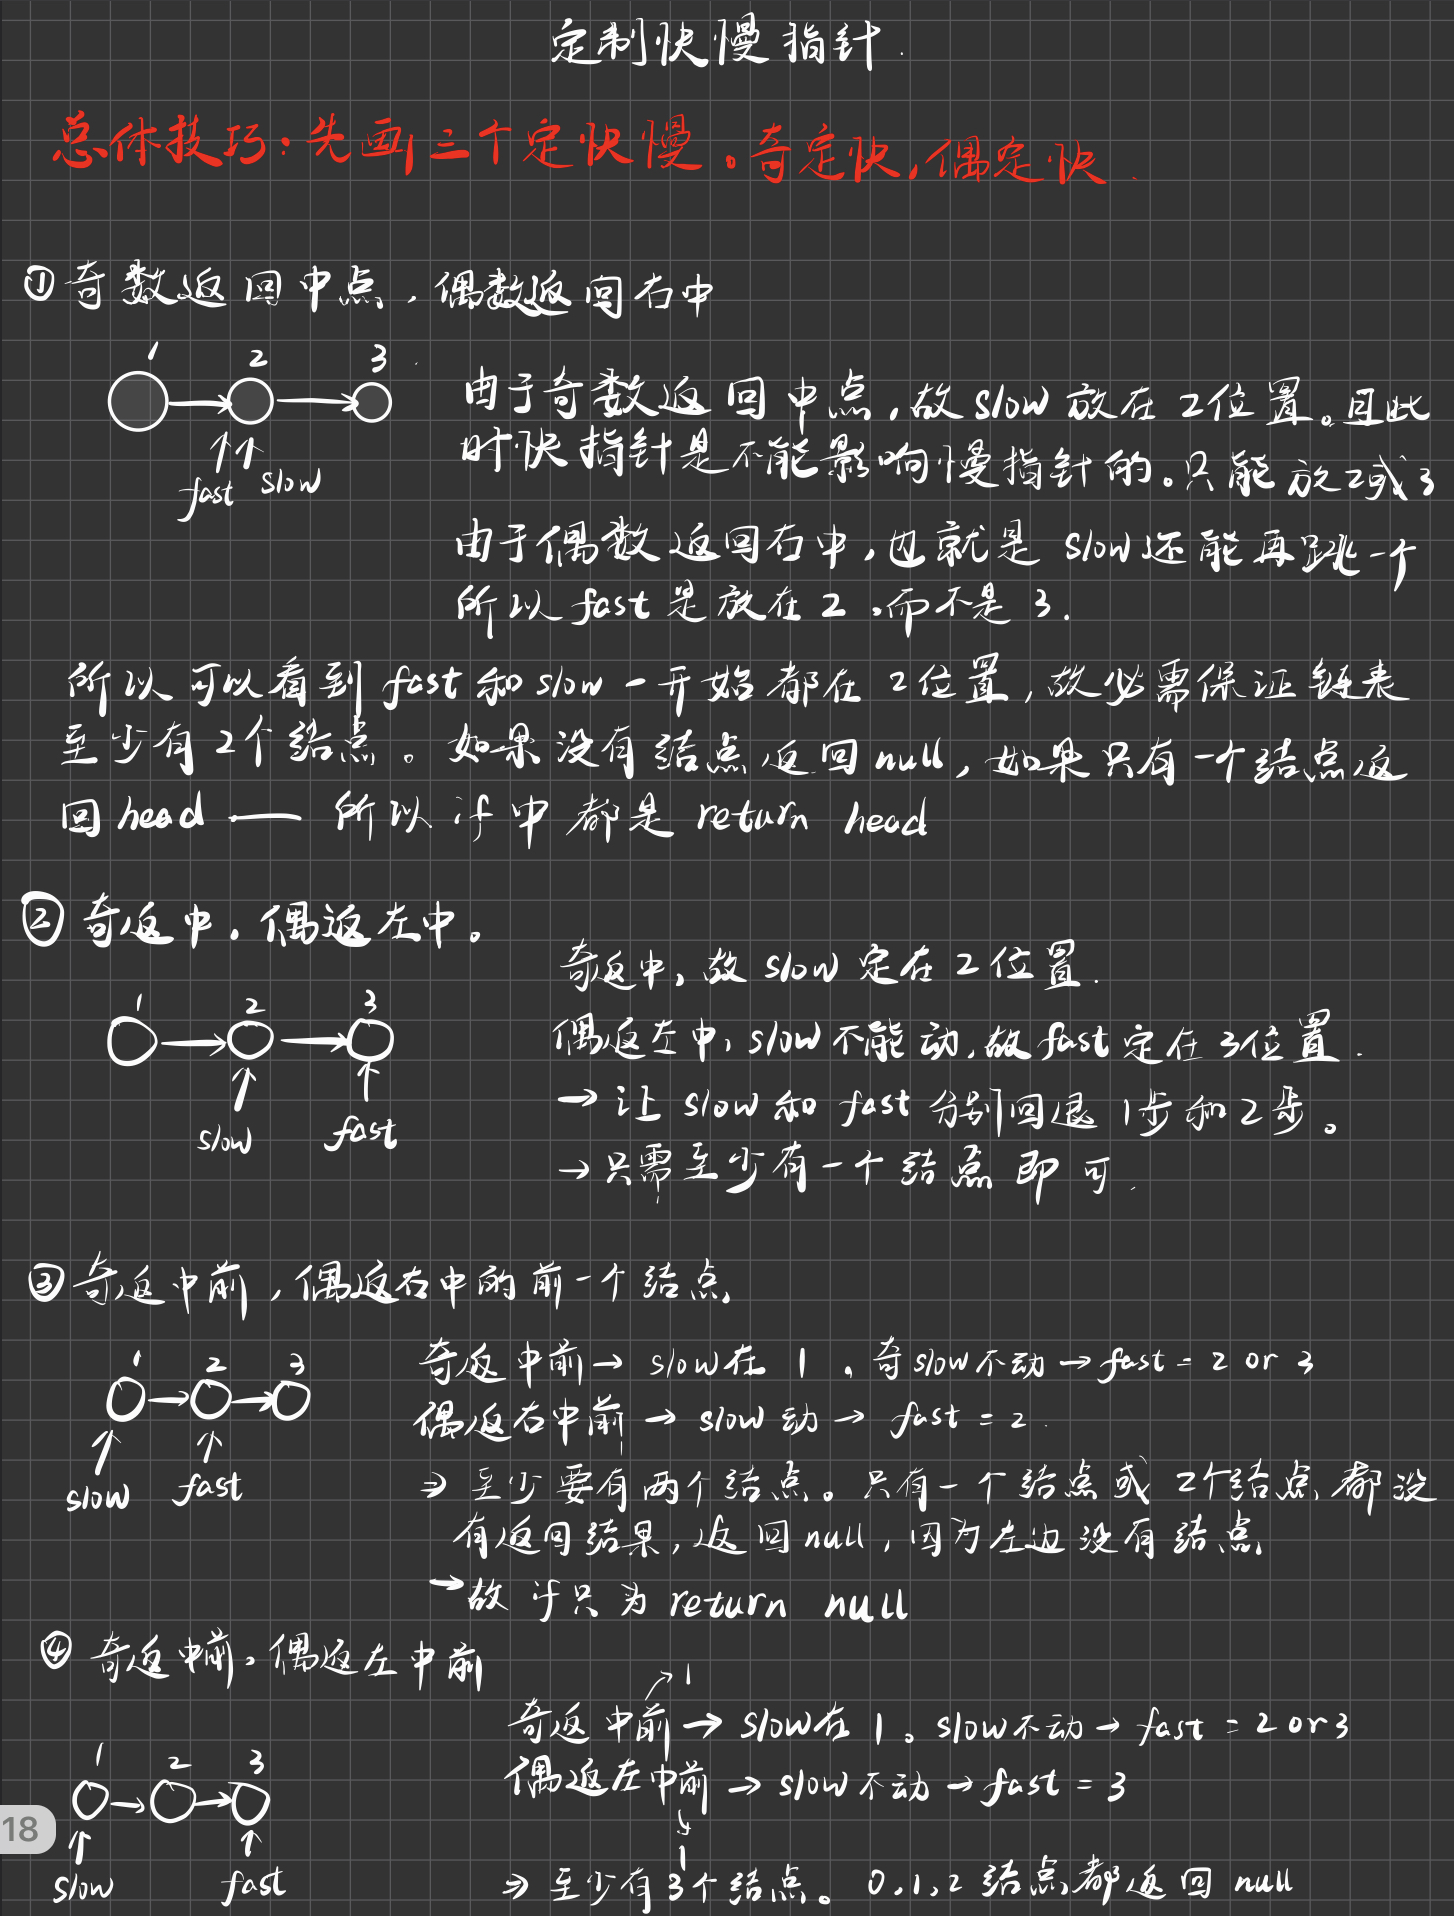 定制快慢指针.
总体技巧：先画三个定快慢。奇定快，偶定快.
① 奇数返回中点，偶数返回右中
1 2 3
fast slow
由于奇数返回中点，故slow放在2位置。且此
时快指针是不能影响慢指针的。只能放2或3
由于偶数返回右中，也就是slow还能再跳一个
所以fast是放在2，而不是3.
所以可以看到fast和slow一开始都在2位置，故必需保证链表
至少有2个结点。如果没有结点返回null，如果只有一个结点返
回head —— 所以if中都是return head
② 奇返中，偶返左中。
1 2 3
slow fast
奇返中，故slow定在2位置.
偶返左中，slow不能动，故fast定在3位置.
→ 让slow和fast分别回退1步和2步。
→ 只需至少有一个结点即可.
③ 奇返中前，偶返右中的前一个结点
1 2 3
slow fast
奇返中前→ slow在1，奇slow不动→fast = 2 or 3
偶返右中前 → slow动→ fast = 2.
⇒ 至少要有两个结点。只有一个结点或2个结点都没
有返回结果，返回null，因为左边没有结点
→故if只为return null
④ 奇返中前，偶返左中前
1 2 3
slow fast
→1
奇返中前→ slow在1。slow不动→ fast = 2 or 3
偶返左中前 → slow不动→fast = 3
↓
1
⇒ 至少有3个结点。0,1,2结点都返回null
18